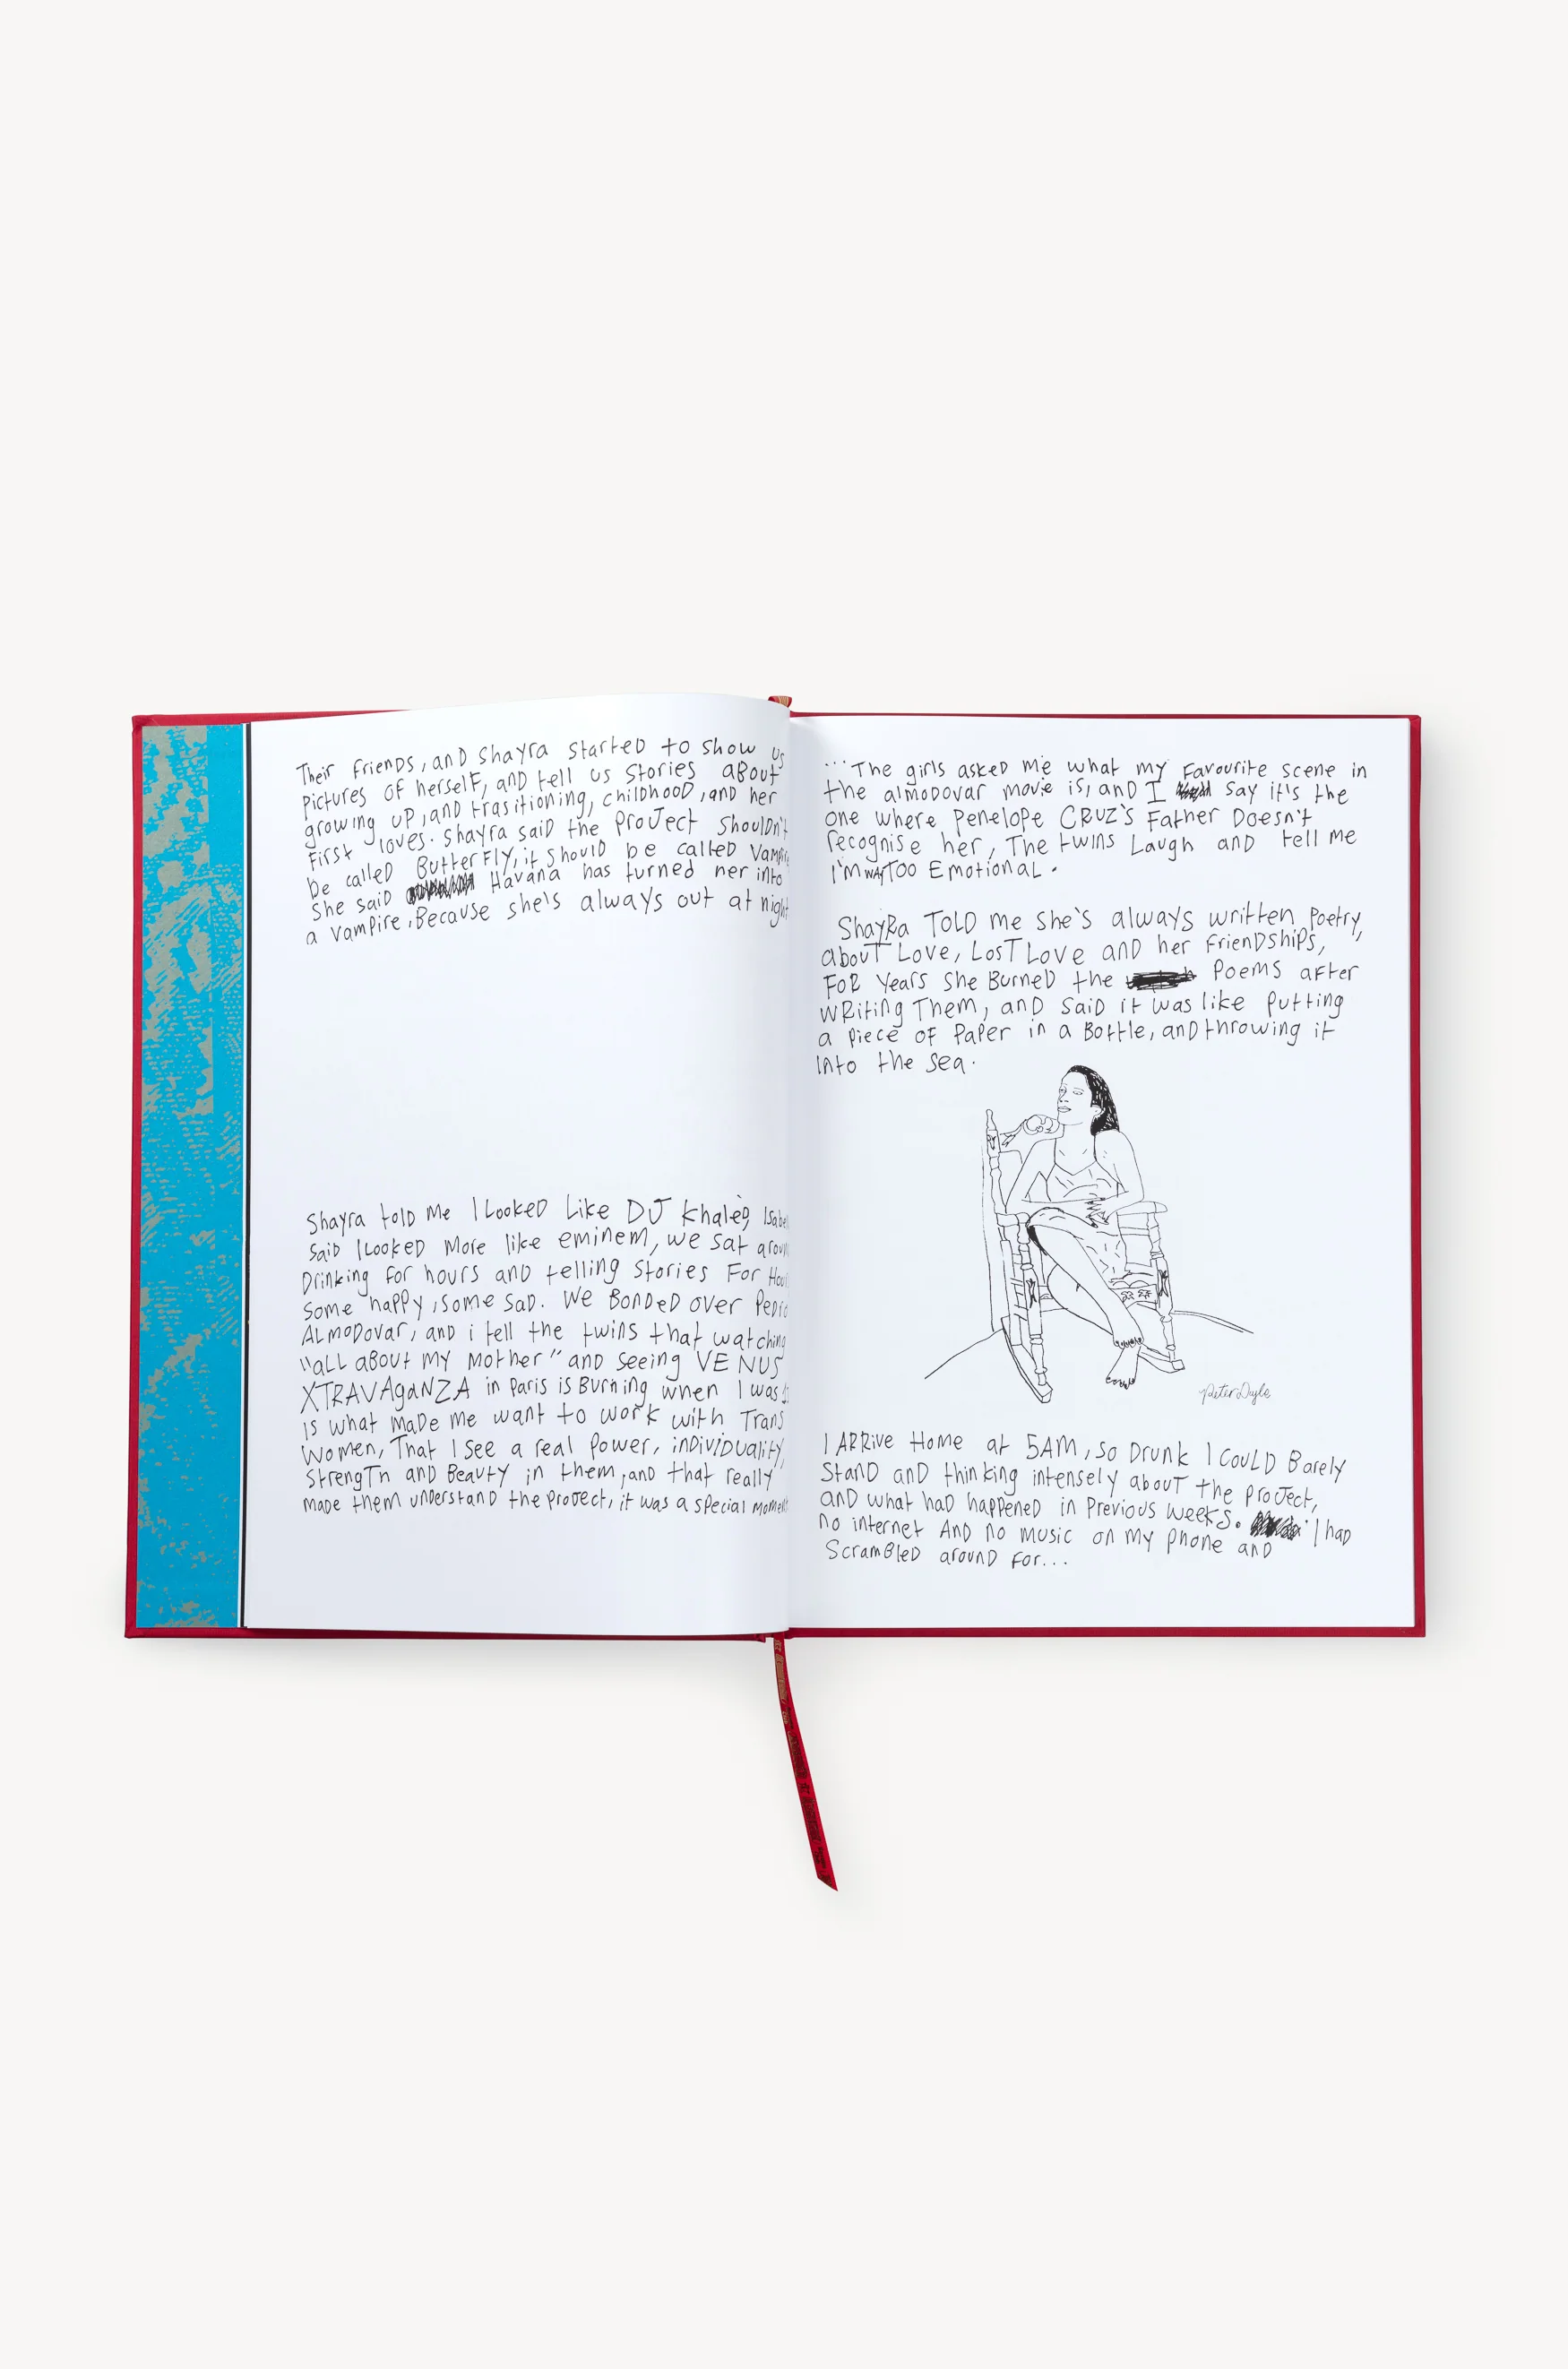 Their Friends, and Shayra started to show us
pictures of herself, and tell us stories about
growing up, and trasitioning, childhood, and her
first loves. Shayra said the project shouldn't
be called Butterfly, it should be called Vampire
She said Havana has turned her into
a vampire, Because she's always out at night
Shayra told me I Looked Like DJ Khaled, Isabe
said I Looked More like eminem, we sat aroun
Drinking for hours and telling stories For Hou
some happy, some sad. We Bonded over Pedro
Almodovar, and i tell the twins that watching
"all about my mother" and seeing VENUS
XTRAVAgaNZA in Paris is Burning when I was
is what made me want to work with Trans
Women, That I see a real power, individuality,
Strength and Beauty in them, and that really
made them understand the project, it was a special moment
...The girls asked me what my Favourite scene in
the almodovar movie is, and I say it's the
one where penelope CRUZ'S Father Doesn't
recognise her, The twins Laugh and tell me
I'm way TOO Emotional.
Shayra TOLD me she's always written poetry,
about Love, Lost Love and her Friendships,
FOR Years She Burned the Poems after
writing Them, and said it was like putting
a piece of paper in a Bottle, and throwing it
into the sea.
Peter Doyle
I ARRIVE Home at 5AM, so Drunk I COULD Barely
Stand and thinking intensely about the project,
and what had happened in previous weeks. I had
no internet And no music on my phone and
Scrambled around for...